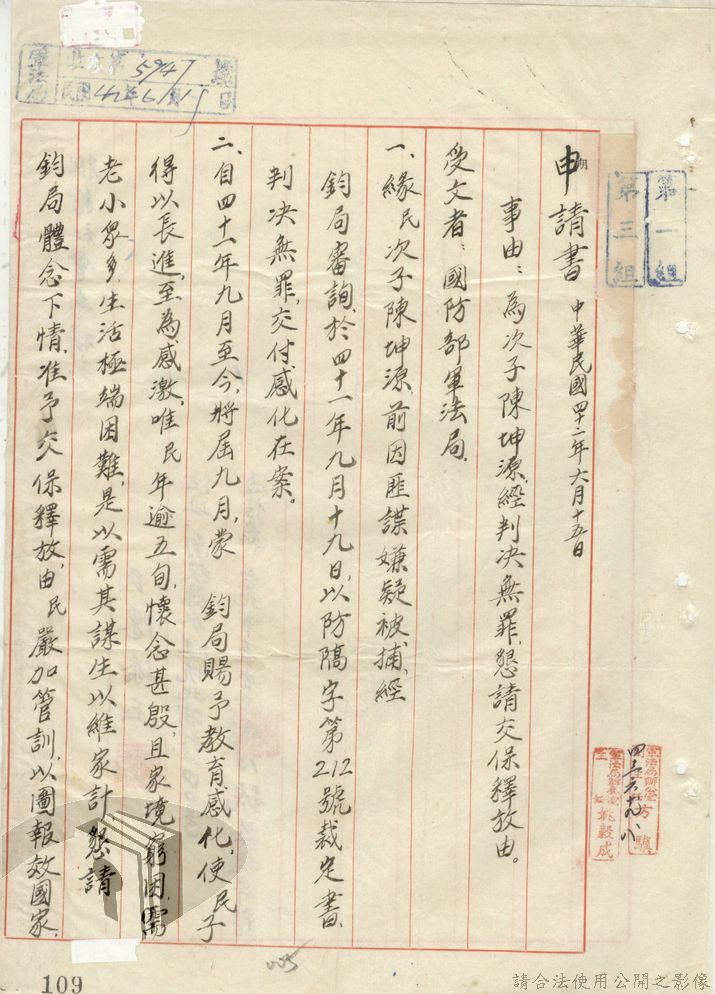 申請書 中華民國四十二年六月十五日
事由：為次子陳坤源，經判決無罪，懇請交保釋放由。
受文者：國防部軍法局．
一、緣民次子陳坤源，前因匪諜嫌疑被捕，經
鈞局審詢，於四十一年九月十九日，以防隔字第212號裁定書．
判決無罪，交付感化在案。
二、自四十一年九月至今，將屆九月，蒙　鈞局賜予教育感化，使民子
得以長進，至為感激，唯民年逾五旬，懷念甚殷，且家境窮困，需
老小眾多，生活極端困難，是以需其謀生以維家計，懇請
鈞局體念下情，准予交保釋放，由民嚴加管訓，以圖報效國家．
第一組
第三組
軍法局
收文第5947號
109
005
請合法使用公開之影像